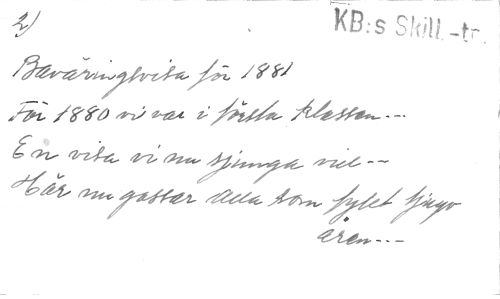 2)
KB:s Skill.-tr.
Beväringsvisa för 1881
För 1880 vi var i första klassen---
En visa vi nu sjunga vill--
Här nu gossar alla som fyllt tjugo
åren---